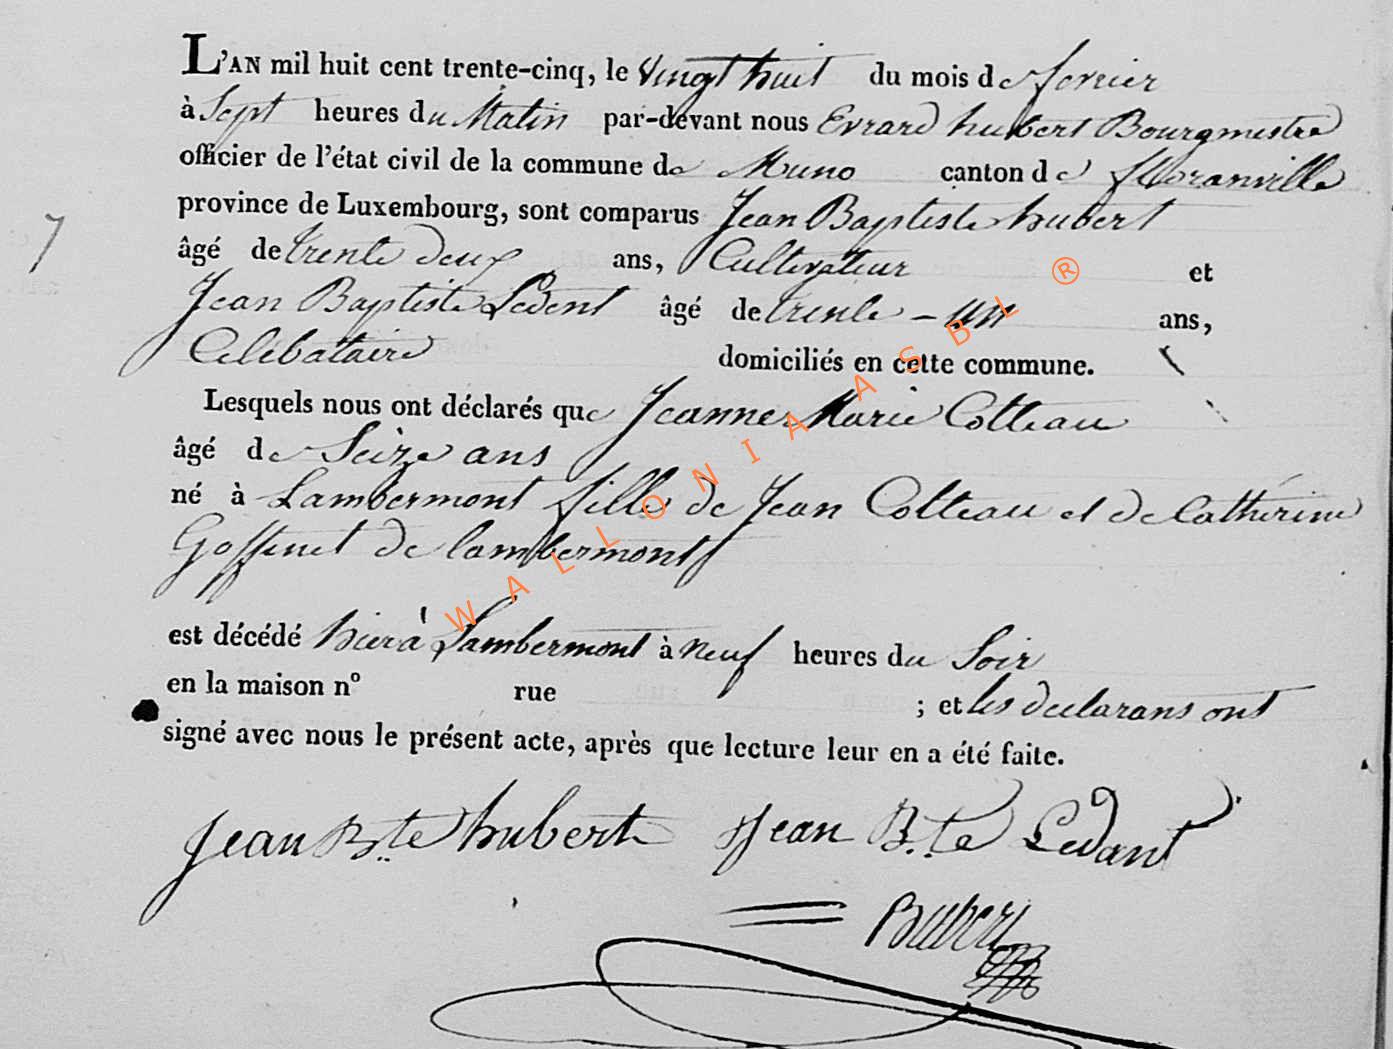 L'AN mil huit cent trente-cinq, le Vingt huit du mois de fevrier
à Sept heures du Matin par-devant nous Evrard hubert Bourgmestre
officier de l'état civil de la commune de Muno canton de floranville
province de Luxembourg, sont comparus Jean Baptiste hubert
7
âgé de trente deux ans, Cultivateur et
Jean Baptiste Ledent âgé de trente-un ans,
Celibataire domiciliés en cette commune.
Lesquels nous ont déclarés que Jeanne Marie Cotteau
âgé de Seize ans
né à Lambermont fille de Jean Cotteau et de Catherine
Goffinet de lambermont
est décédé hier à Lambermont à neuf heures du Soir
en la maison nº rue ; et les declarans ont
signé avec nous le présent acte, après que lecture leur en a été faite.
Jean Bte hubert Jean B.te Ledant
WALLONIA ASBL ®